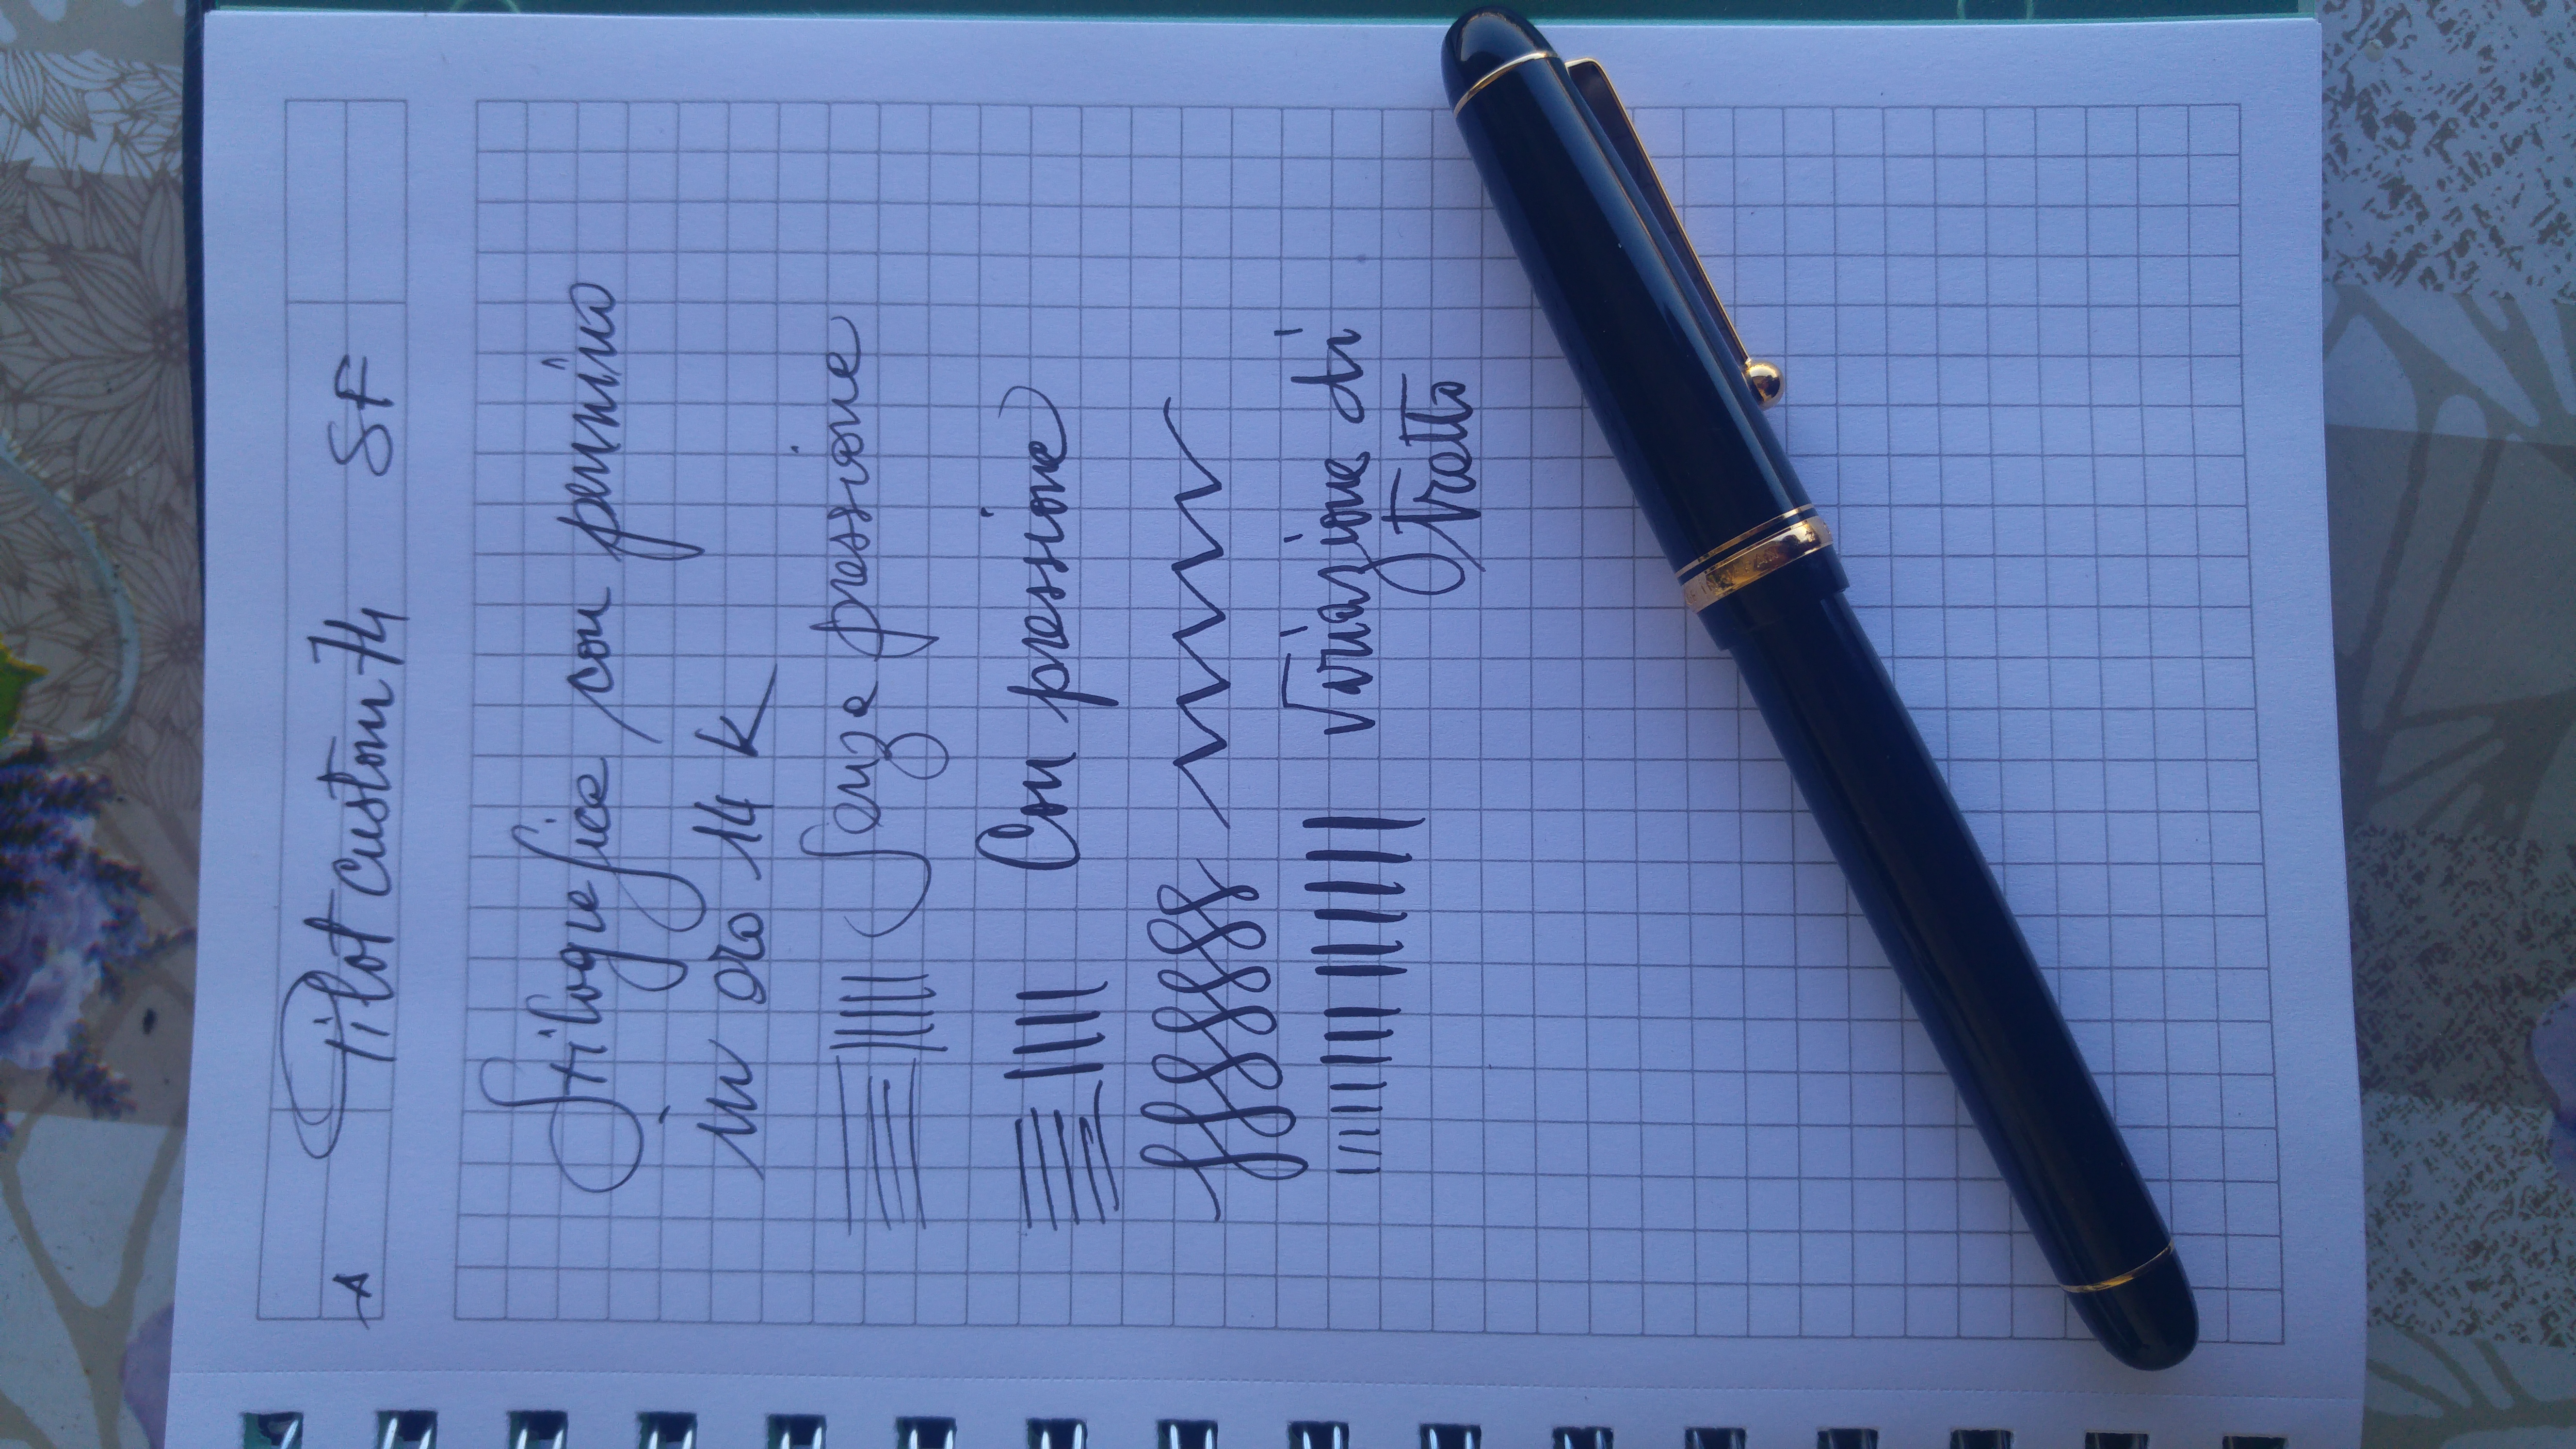 A Pilot Custom 74 SF
Stilografica con pennino
in oro 14 K
Senza pressione
Con pressione
Variazione di
tratto